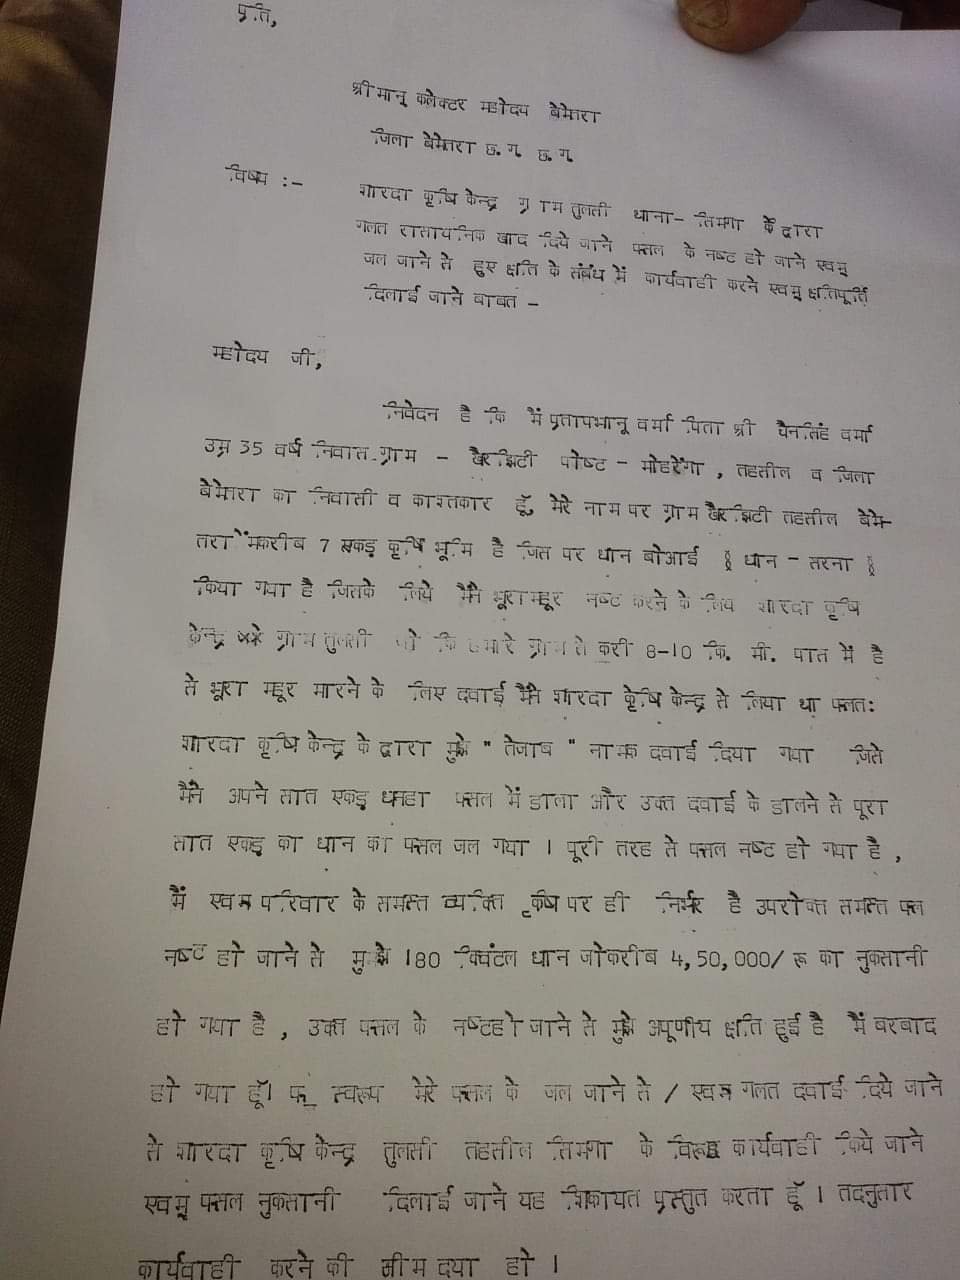 प्रति,
श्रीमान् कलेक्टर महोदय बेमेतरा
जिला बेमेतरा छ. ग. छ. ग.
विषय :- शारदा कृषि केन्द्र ग्राम तुलसी थाना- सिमगा के द्वारा
गलत रासायनिक खाद दिये जाने फसल के नष्ट हो जाने एवम्
जल जाने से हुए क्षति के संबंध में कार्यवाही करने एवम् क्षतिपूर्ति
दिलाई जाने बाबत -
महोदय जी,
निवेदन है कि मैं प्रतापभानू वर्मा पिता श्री चैनसिंह वर्मा
उम्र 35 वर्ष निवास-ग्राम - खैरझिटी पोष्ट - मोहरेंगा , तहसील व जिला
बेमेतरा का निवासी व काश्तकार हूँ, मेरे नाम पर ग्राम खैरझिटी तहसील बेमे-
तरा में करीब 7 एकड़ कृषि भूमि है जिस पर धान बोआई ( धान - सरना )
किया गया है जिसके लिये मैंने भूरा महूर नष्ट करने के लिए शारदा कृषि
केन्द्र ग्राम तुलसी जो कि हमारे ग्राम से करी 8-10 कि. मी. पास में है
से भूरा महूर मारने के लिए दवाई मैंने शारदा कृषि केन्द्र से लिया था फलतः
शारदा कृषि केन्द्र के द्वारा मुझे " तेजाब " नामक दवाई दिया गया जिसे
मैंने अपने सात एकड़ धनहा फसल में डाला और उक्त दवाई के डालने से पूरा
सात एकड़ का धान का फसल जल गया । पूरी तरह से फसल नष्ट हो गया है ,
मैं एवम परिवार के समस्त व्यक्ति कृषि पर ही निर्भर है उपरोक्त समस्त फसल
नष्ट हो जाने से मुझे 180 क्विंटल धान जोकरीब 4,50,000/ रू का नुकसानी
हो गया है , उक्त फसल के नष्टहो जाने से मुझे अपूर्णीय क्षति हुई है मैं बरबाद
हो गया हूँ। स्वरूप मेरे फसल के जल जाने से / एवम गलत दवाई दिये जाने
से शारदा कृषि केन्द्र तुलसी तहसील सिमगा के विरूद्ध कार्यवाही किये जाने
एवम् फसल नुकसानी दिलाई जाने यह शिकायत प्रस्तुत करता हूँ । तदनुसार
कार्यवाही करने की असीम दया हो ।